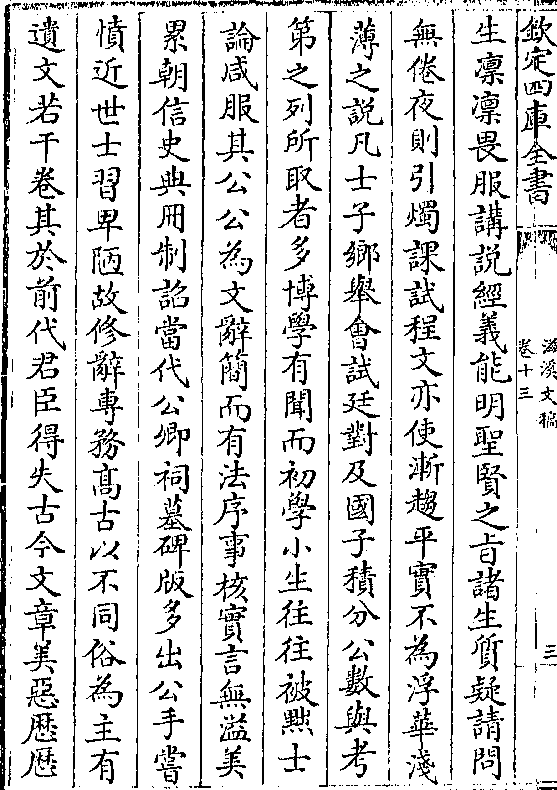 欽定四庫全書
滋溪文稿
卷十三
三
生凛凛畏服講説經義能明聖賢之㫖諸生質疑請問
無倦夜則引燭課試程文亦使漸趨平實不為浮華淺
薄之說凡士子鄉舉會試廷對及國子積分公數與考
第之列所取者多博學有聞而初學小生往往被黜士
論咸服其公公為文辭簡而有法序事核實言無溢美
累朝信史典冊制詔當代公卿祠墓碑版多出公手嘗
憤近世士習卑陋故修辭專務髙古以不同俗為主有
遺文若干卷其於前代君臣得失古今文章美惡歴歴